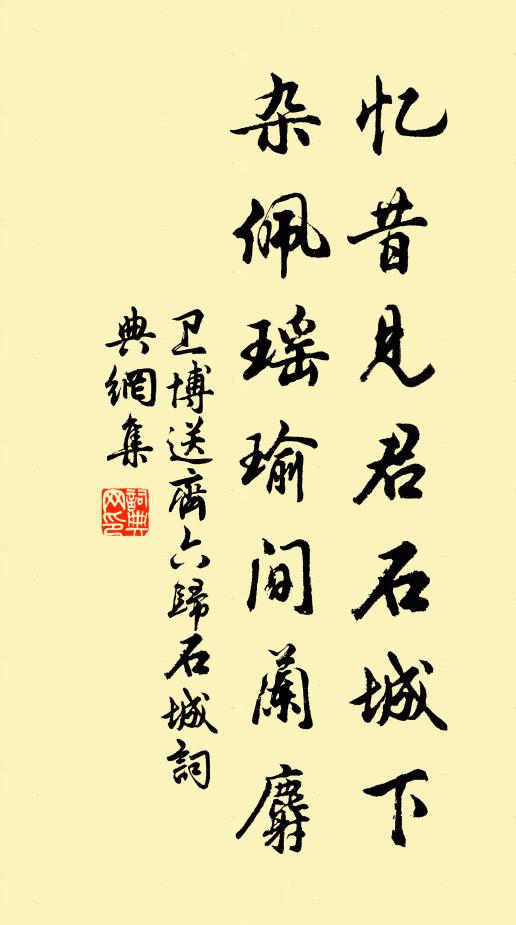 忆昔见君石城下
杂佩瑶瑜间兰麝
卫博送齊六歸石城詞
典網集
詞典网印